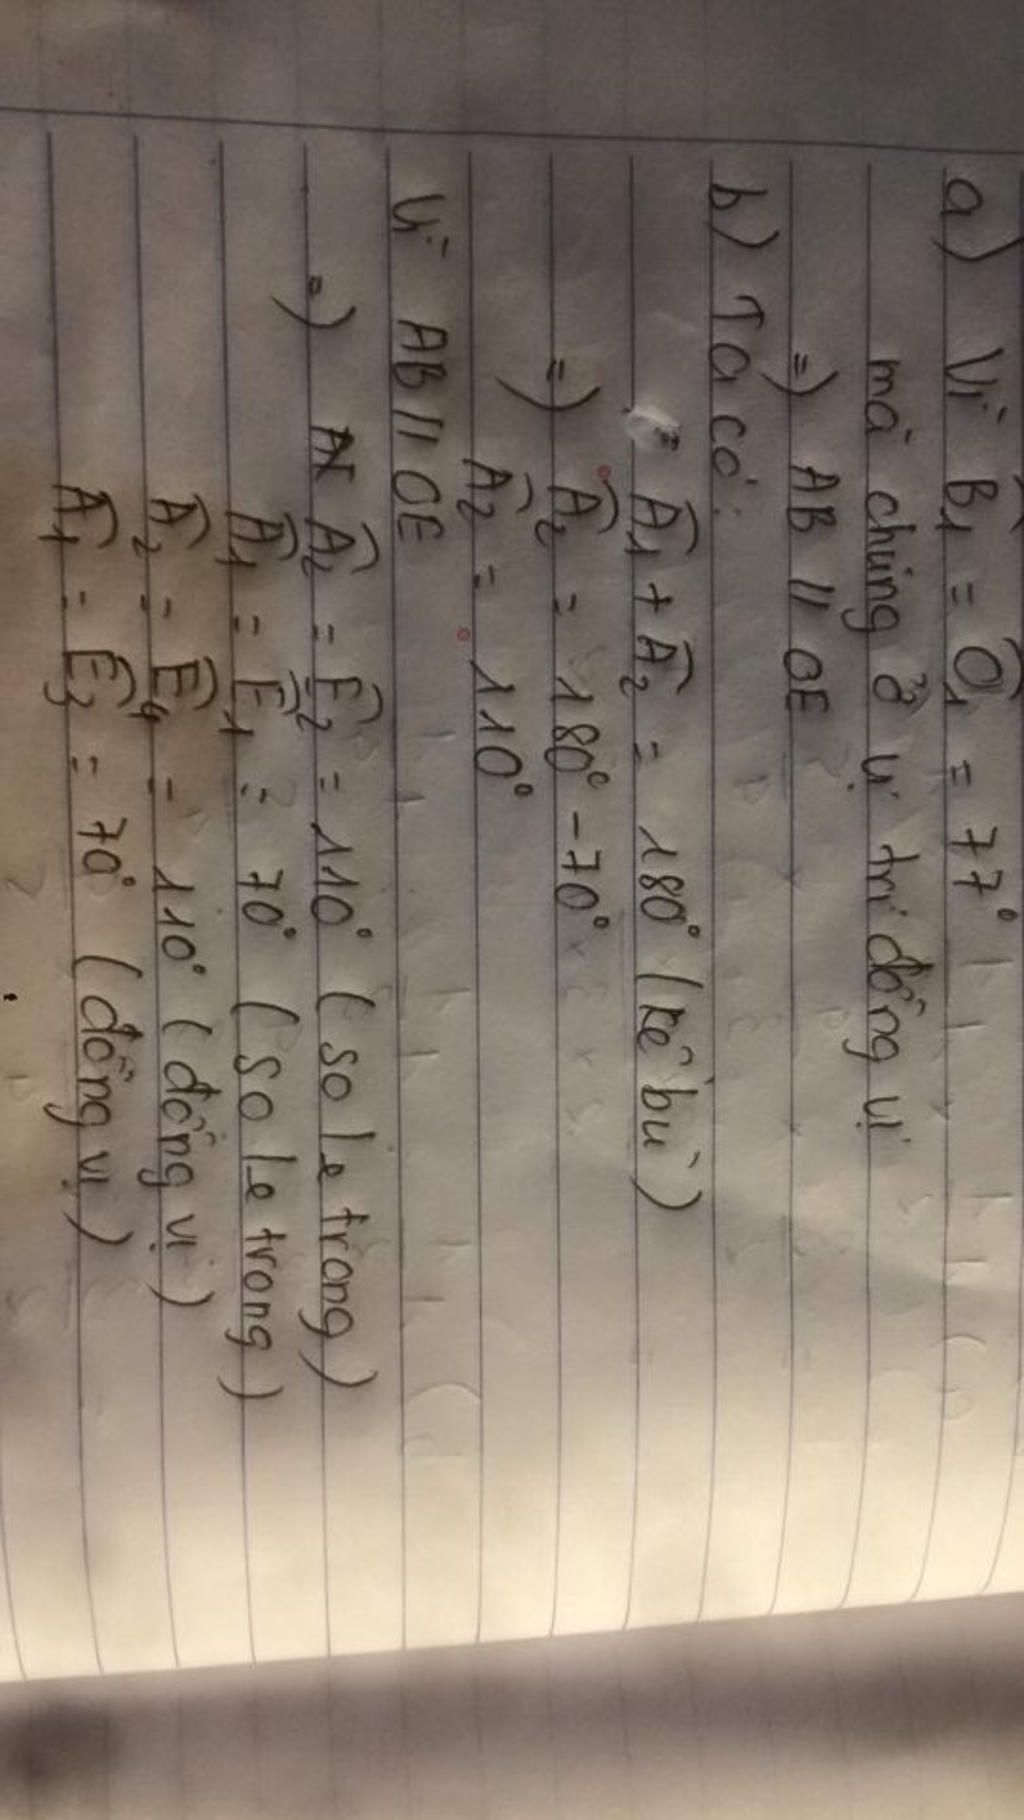 a) Vì B̂₁ = Ô₁ = 77°
mà chúng ở vị trí đồng vị
=) AB // OE
b) Ta có:
Â₁ + Â₂ = 180° (kề bù)
=) Â₂ = 180° - 70°
Â₂ = 110°
Vì AB // OE
=) Â₂ = Ê₂ = 110° (so le trong)
Â₁ = Ê₁ = 70° (so le trong)
Â₂ = Ê₄ = 110° (đồng vị)
Â₁ = Ê₃ = 70° (đồng vị)